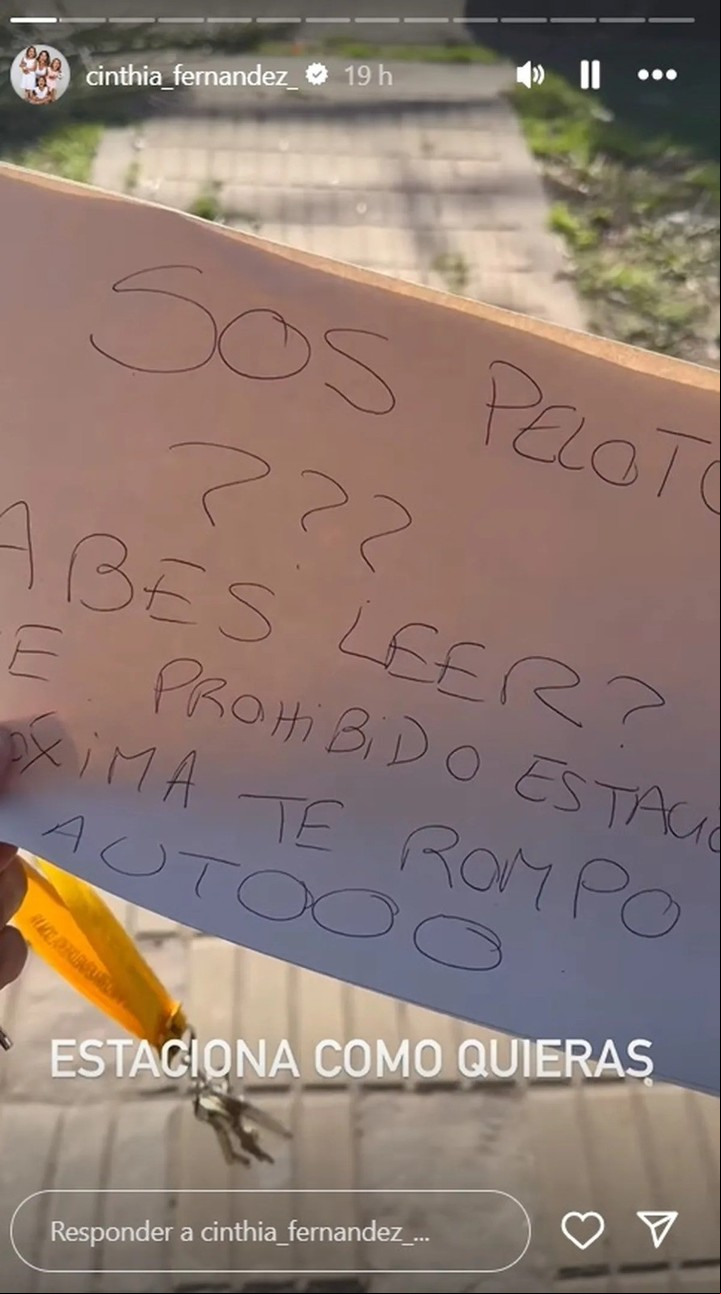 cinthia_fernandez_ 19 h
SOS PELOTO
???
ABES LEER?
E PROHIBIDO ESTACIO
OXIMA TE ROMPO
AUTOOO
ESTACIONA COMO QUIERAS
Responder a cinthia_fernandez_...